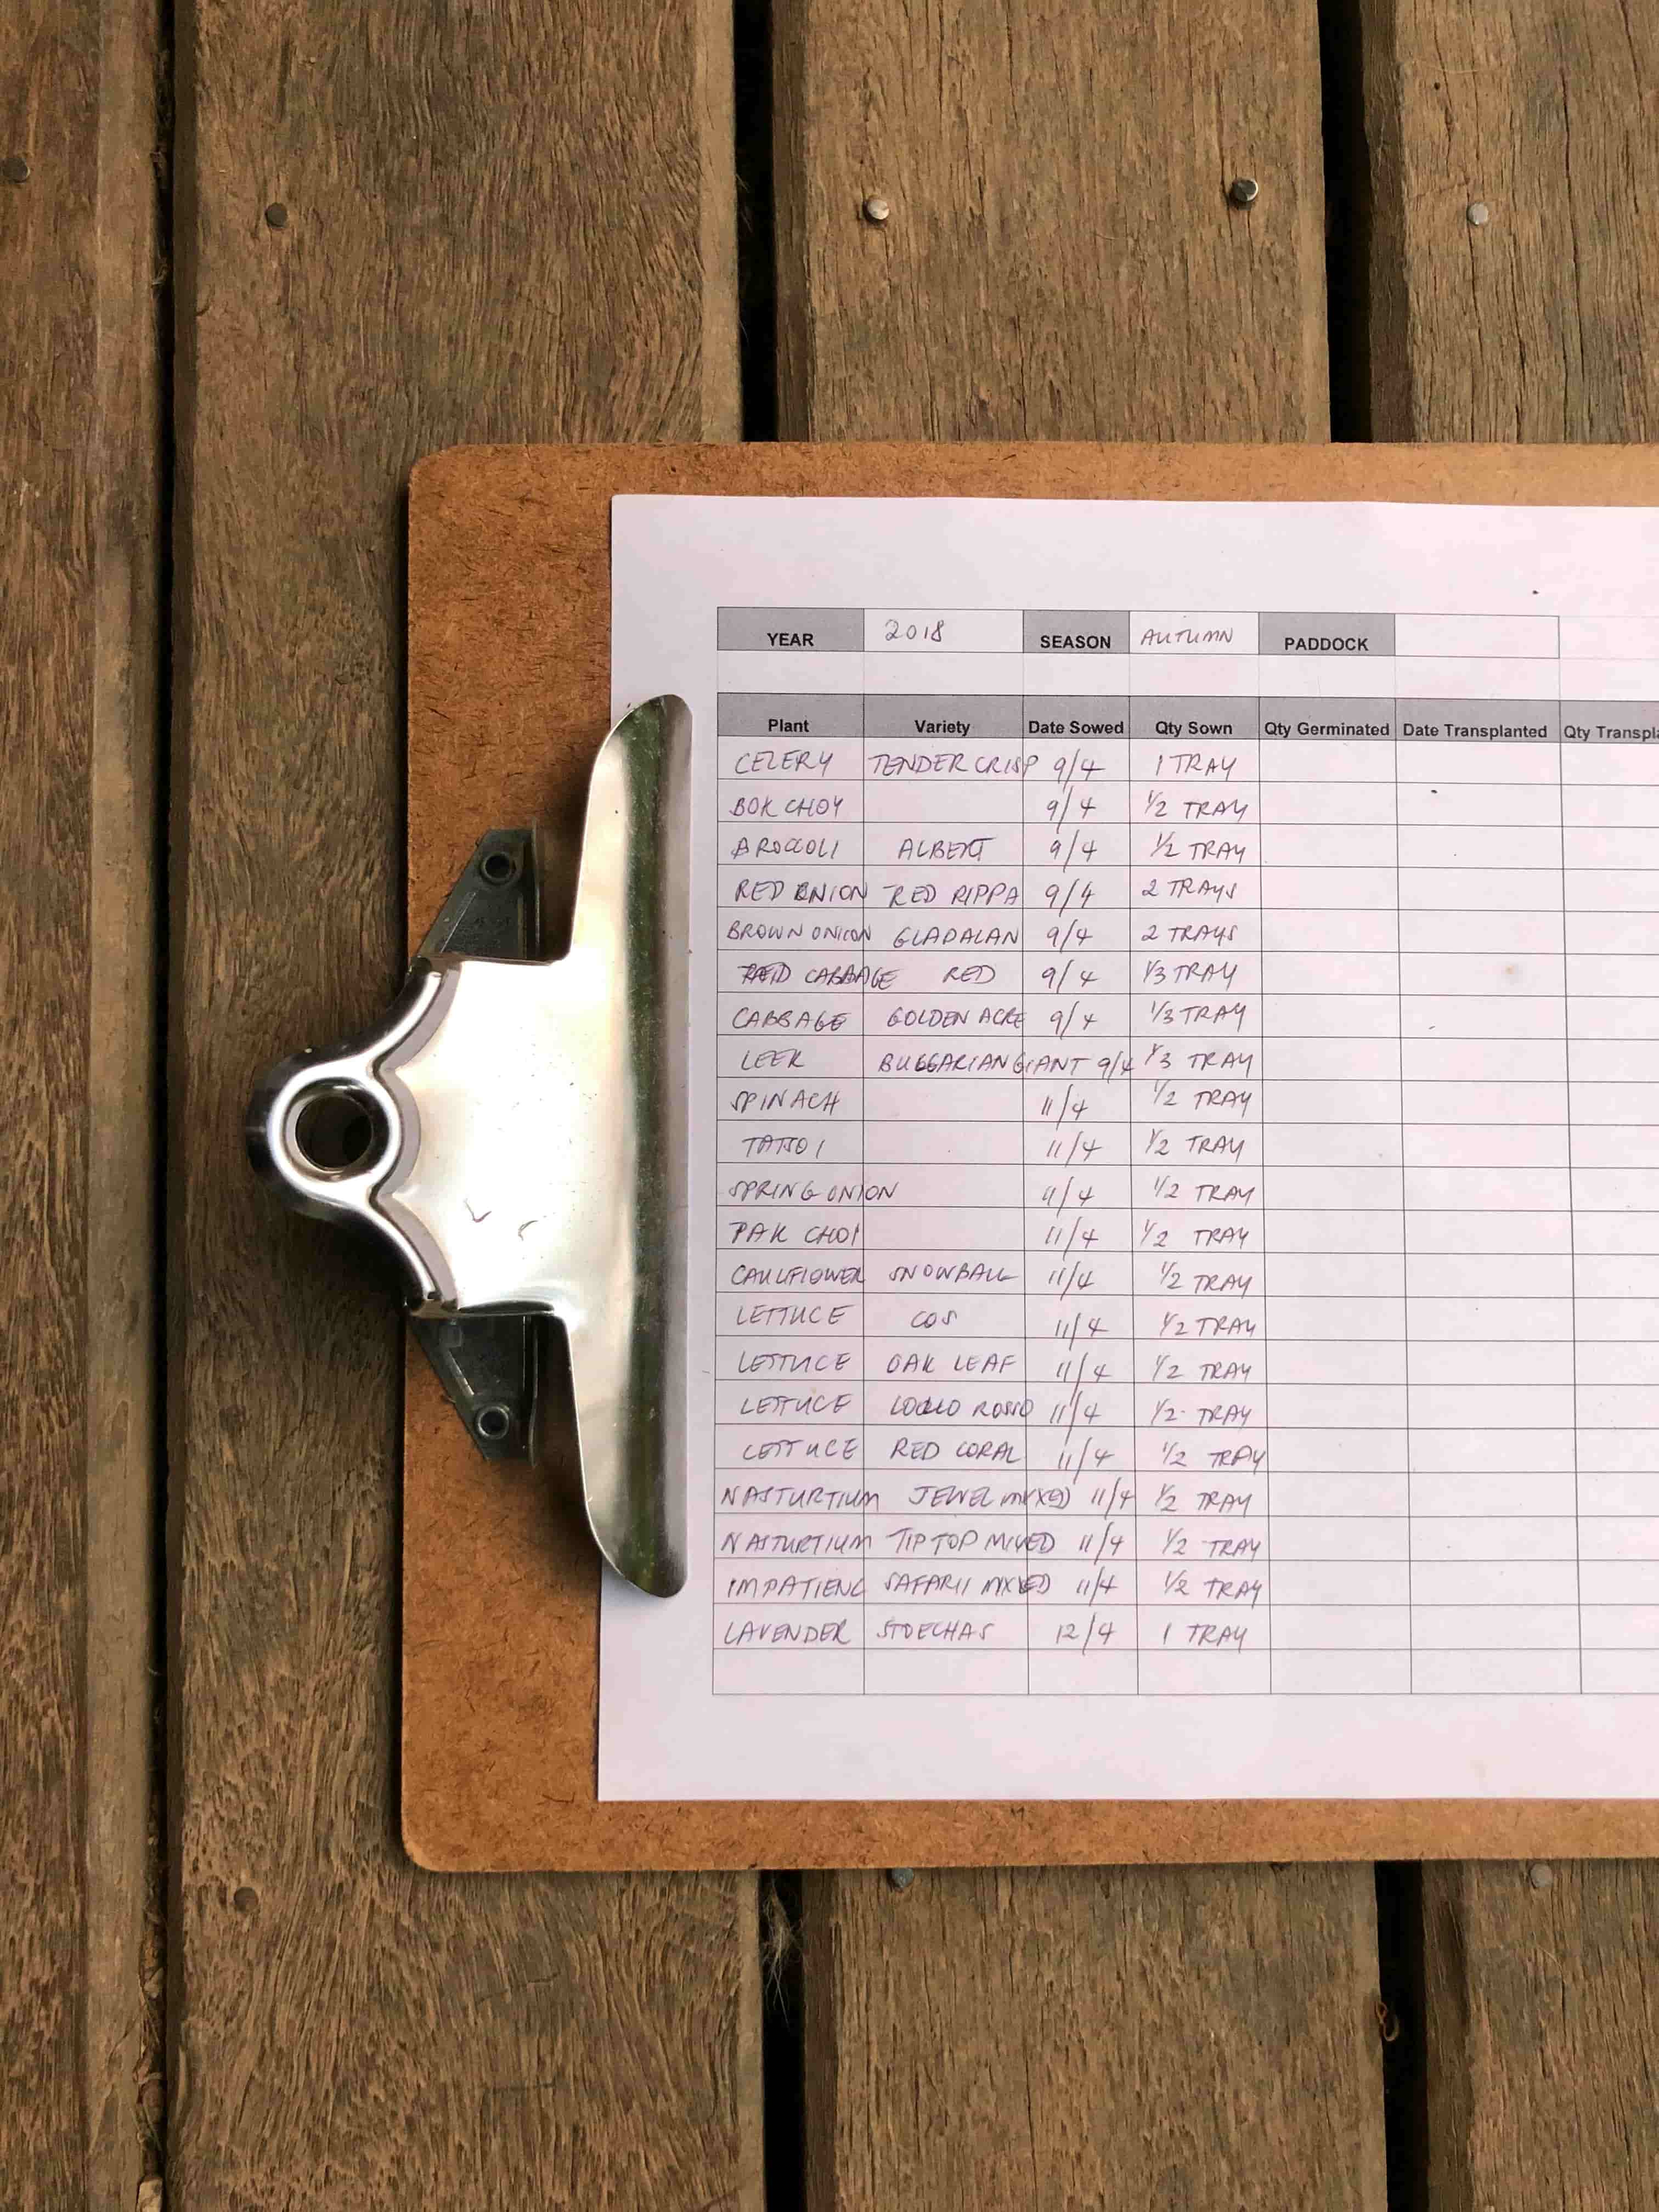 YEAR 2018 SEASON AUTUMN PADDOCK
Plant Variety Date Sowed Qty Sown Qty Germinated Date Transplanted Qty Transpla
CELERY TENDER CRISP 9/4 1 TRAY
BOK CHOY 9/4 1/2 TRAY
BROCCOLI ALBERT 9/4 1/2 TRAY
RED ONION RED RIPPA 9/4 2 TRAYS
BROWN ONION GLADALAN 9/4 2 TRAYS
RED CABBAGE RED 9/4 1/3 TRAY
CABBAGE GOLDEN ACRE 9/4 1/3 TRAY
LEEK BULGARIAN GIANT 9/4 1/3 TRAY
SPINACH 11/4 1/2 TRAY
TATSOI 11/4 1/2 TRAY
SPRING ONION 11/4 1/2 TRAY
PAK CHOI 11/4 1/2 TRAY
CAULIFLOWER SNOWBALL 11/4 1/2 TRAY
LETTUCE COS 11/4 1/2 TRAY
LETTUCE OAK LEAF 11/4 1/2 TRAY
LETTUCE LOLLO ROSSO 11/4 1/2 TRAY
LETTUCE RED CORAL 11/4 1/2 TRAY
NASTURTIUM JEWEL MIXED 11/4 1/2 TRAY
NASTURTIUM TIP TOP MIXED 11/4 1/2 TRAY
IMPATIENC SAFARII MIXED 11/4 1/2 TRAY
LAVENDER STOECHAS 12/4 1 TRAY